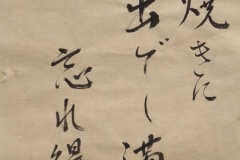 焼きに
出でし満
忘れ得